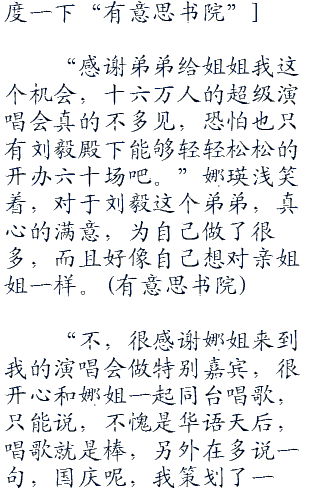 度一下“有意思书院”]
“感谢弟弟给姐姐我这
个机会，十六万人的超级演
唱会真的不多见，恐怕也只
有刘毅殿下能够轻轻松松的
开办六十场吧。”娜瑛浅笑
着，对于刘毅这个弟弟，真
心的满意，为自己做了很
多，而且好像自己想对亲姐
姐一样。(有意思书院)
“不，很感谢娜姐来到
我的演唱会做特别嘉宾，很
开心和娜姐一起同台唱歌，
只能说，不愧是华语天后，
唱歌就是棒，另外在多说一
句，国庆呢，我策划了一